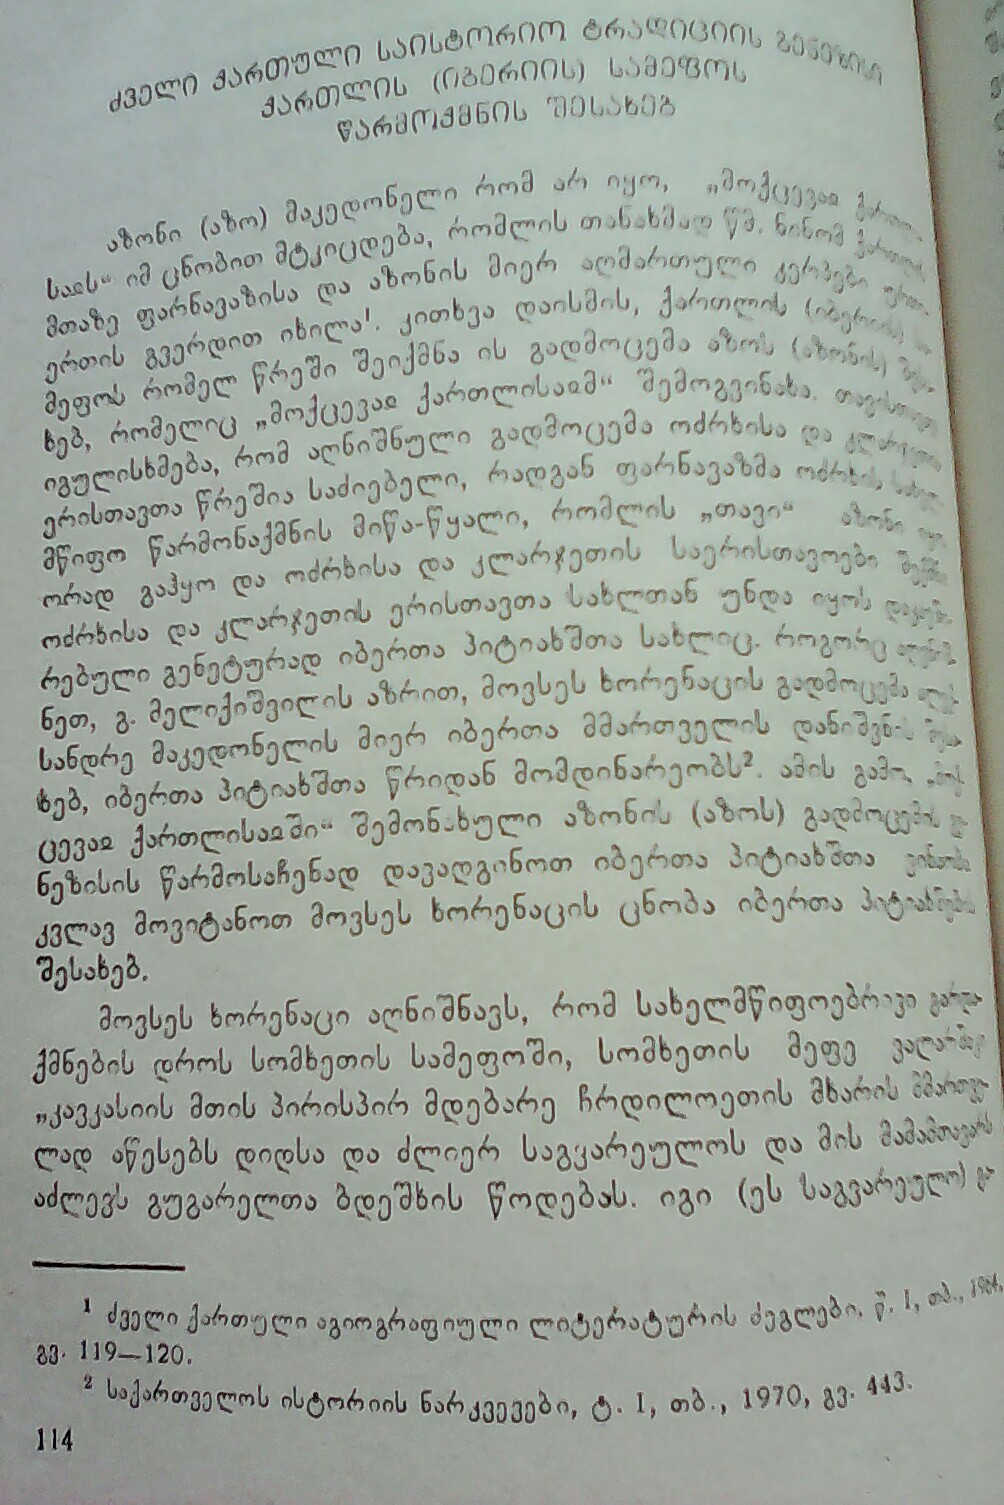 ძველი ქართული საისტორიო ტრადიციის გენეზისი
ქართლის (იბერიის) სამეფოს
წარმოქმნის შესახებ
აზონი (აზო) მაკედონელი რომ არ იყო, „მოქცევაჲ ქართლი-
საჲს“ იმ ცნობით მტკიცდება, რომლის თანახმად წმ. ნინომ ქართლის
მთაზე ფარნავაზისა და აზონის მიერ აღმართული კერპები ერთი-
ერთის გვერდით იხილა¹. კითხვა დაისმის, ქართლის (იბერიის) სა-
მეფოს რომელ წრეში შეიქმნა ის გადმოცემა აზოს (აზონის) შესა-
ხებ, რომელიც „მოქცევაჲ ქართლისაჲმ“ შემოგვინახა. თავისთავად
იგულისხმება, რომ აღნიშნული გადმოცემა ოძრხისა და კლარჯეთის
ერისთავთა წრეშია საძიებელი, რადგან ფარნავაზმა ოძრხის სახელ-
მწიფო წარმონაქმნის მიწა-წყალი, რომლის „თავი“ აზონი იყო,
ორად გაჰყო და ოძრხისა და კლარჯეთის საერისთავოები შექმნა
ოძრხისა და კლარჯეთის ერისთავთა სახლთან უნდა იყოს დაკავში-
რებული გენეტურად იბერთა პიტიახშთა სახლიც. როგორც აღვნიშ-
ნეთ, გ. მელიქიშვილის აზრით, მოვსეს ხორენაცის გადმოცემა ალექ-
სანდრე მაკედონელის მიერ იბერთა მმართველის დანიშვნის შესა-
ხებ, იბერთა პიტიახშთა წრიდან მომდინარეობს². ამის გამო, „მოქ-
ცევაჲ ქართლისაჲში“ შემონახული აზონის (აზოს) გადმოცემის გე-
ნეზისის წარმოსაჩენად დავადგინოთ იბერთა პიტიახშთა ვინაობა
კვლავ მოვიტანოთ მოვსეს ხორენაცის ცნობა იბერთა პიტიახშების
შესახებ.
მოვსეს ხორენაცი აღნიშნავს, რომ სახელმწიფოებრივი გარდა-
ქმნების დროს სომხეთის სამეფოში, სომხეთის მეფე ვალარშაკ
„კავკასიის მთის პირისპირ მდებარე ჩრდილოეთის მხარის მმართვე-
ლად აწესებს დიდსა და ძლიერ საგვარეულოს და მის მამამთავარს
აძლევს გუგარელთა ბდეშხის წოდებას. იგი (ეს საგვარეულო) გა-
¹ ძველი ქართული აგიოგრაფიული ლიტერატურის ძეგლები, წ. I, თბ., 1964,
გვ. 119—120.
² საქართველოს ისტორიის ნარკვევები, ტ. I, თბ., 1970, გვ. 443.
114